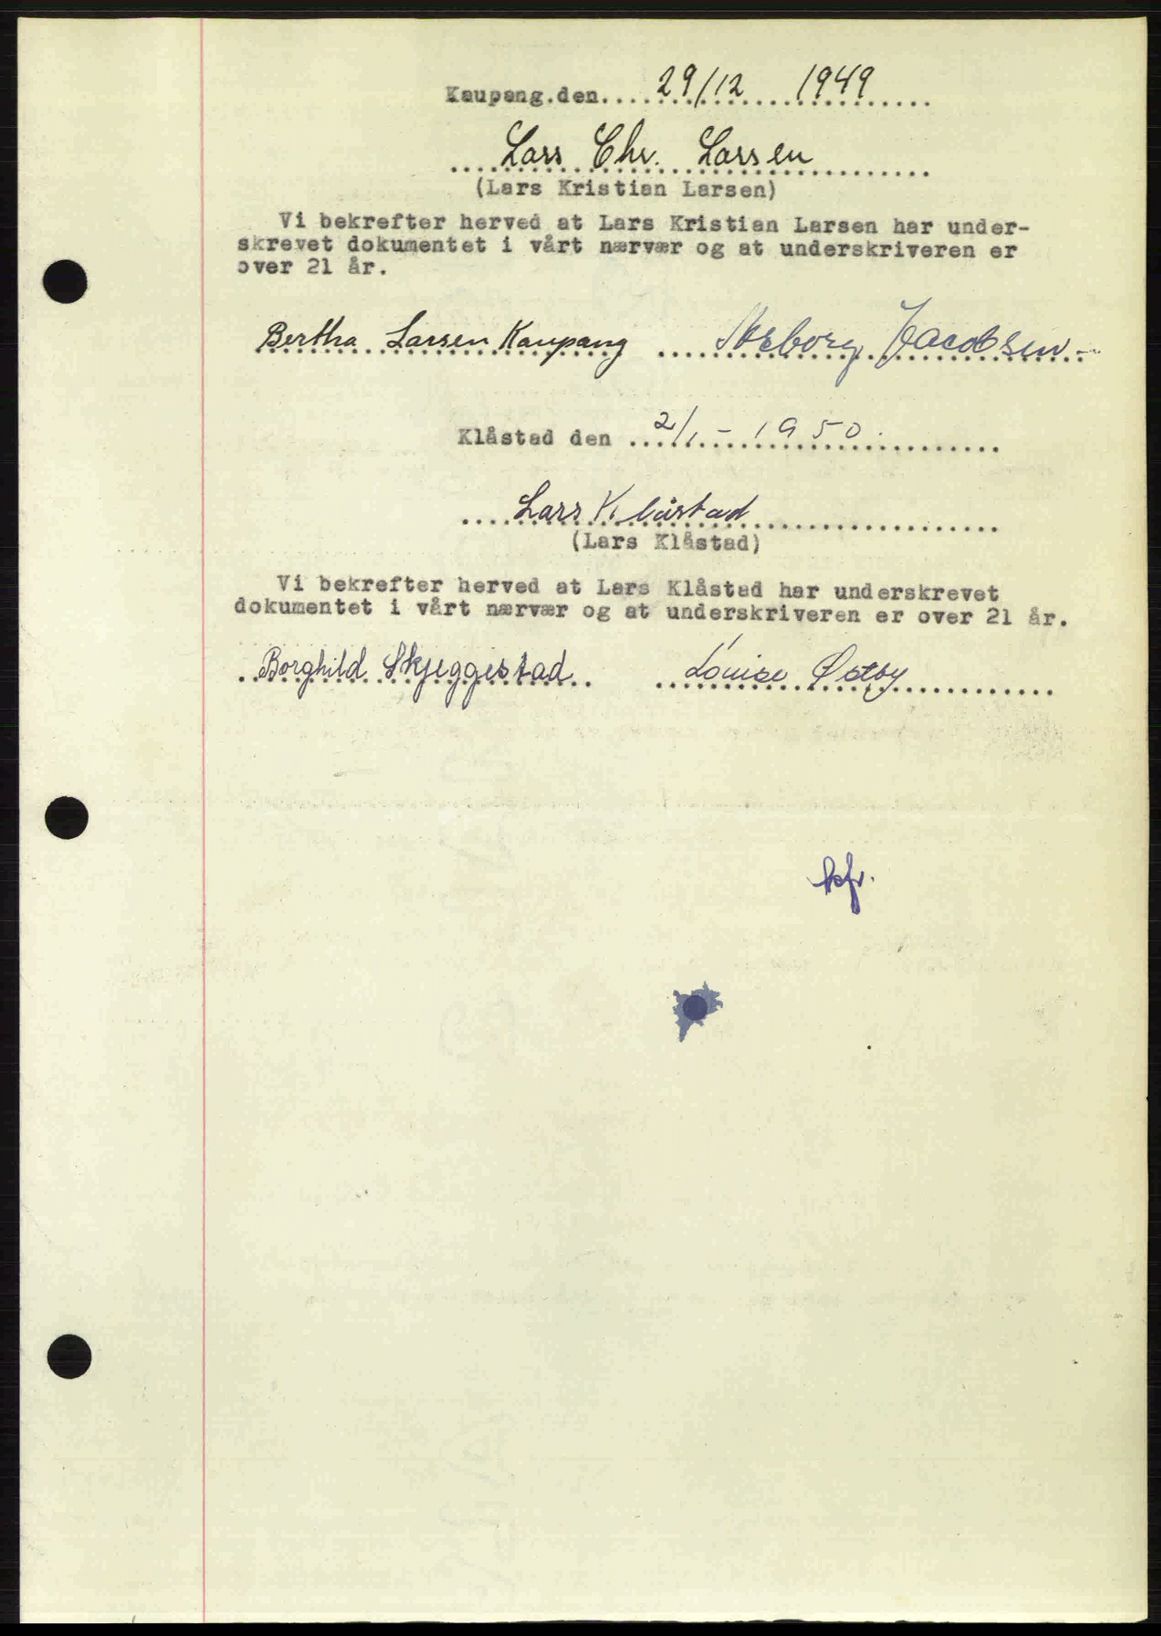 Kaupang.den.... 29/12 1949
Lars Chr. Larsen
(Lars Kristian Larsen)
Vi bekrefter herved at Lars Kristian Larsen har under-
skrevet dokumentet i vårt nærvær og at underskriveren er
over 21 år.
Bertha Larsen Kaupang Jacobsen
Klåstad den 2/1 - 1950.
Lars Klåstad
(Lars Klåstad)
Vi bekrefter herved at Lars Klåstad har underskrevet
dokumentet i vårt nærvær og at underskriveren er over 21 år.
Borghild Skjeggestad Louise Østby